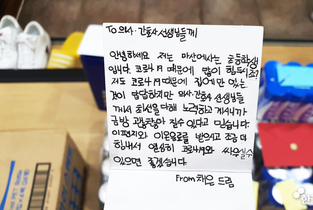 To 의사·간호사 선생님들께
안녕하세요 저는 마산에사는 초등학생
입니다. 코로나19 때문에 많이 힘드시죠?
저도 코로나19 때문에 집에만 있는
것이 답답하지만 의사·간호사 선생님들
께서 최선을 다해 노력하고 계시니까
금방 괜찮아 질수 있다고 믿습니다.
이편지와 이온음료를 받으시고 조금 더
힘내서 열심히 코로나19와 싸우실수
있으면 좋겠습니다.
From 채윤 드림